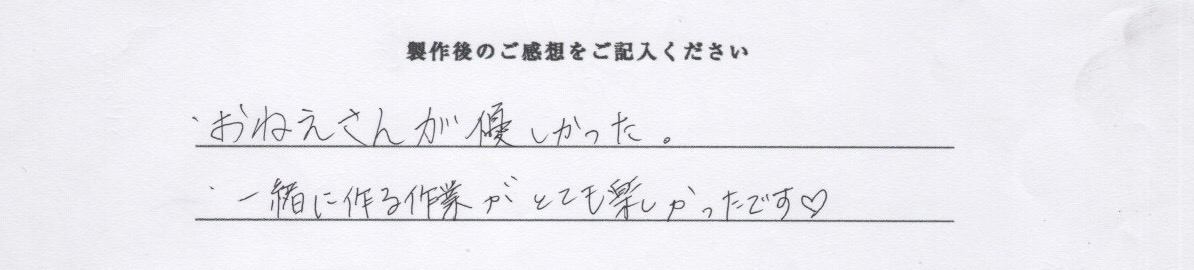 製作後のご感想をご記入ください
・おねえさんが優しかった。
・一緒に作る作業がとても楽しかったです♡